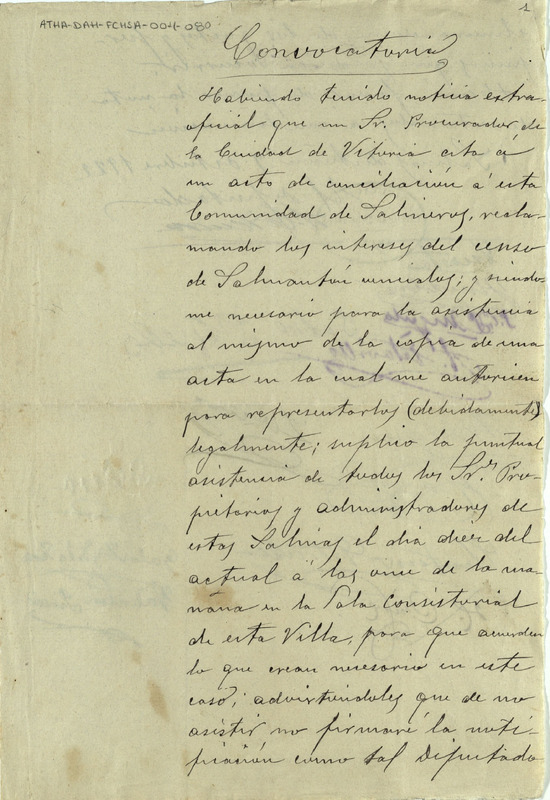 1
ATHA-DAH-FCHSA-004-080
Convocatoria
Habiendo tenido noticia extra-
oficial que un Sr. Procurador de
la Cuidad de Vitoria cita á
un acto de conciliación á esta
Comunidad de Salineros, recla-
mando los intereses del censo
de Salmantón vencidos; y siendo-
me necesario para la asistencia
al mismo de la copia de una
acta en la cual me autoricen
para representarlos (debidamente)
legalmente; suplico la puntual
asistencia de todos los Sr.s Pro-
pietarios y administradores de
estas Salinas el día diez del
actual á las once de la ma-
ñana en la Sala Consistorial
de esta Villa, para que acuerden
lo que crean necesario en este
caso; advirtiendoles que de no
asistir no firmaré la noti-
ficación como tal Diputado